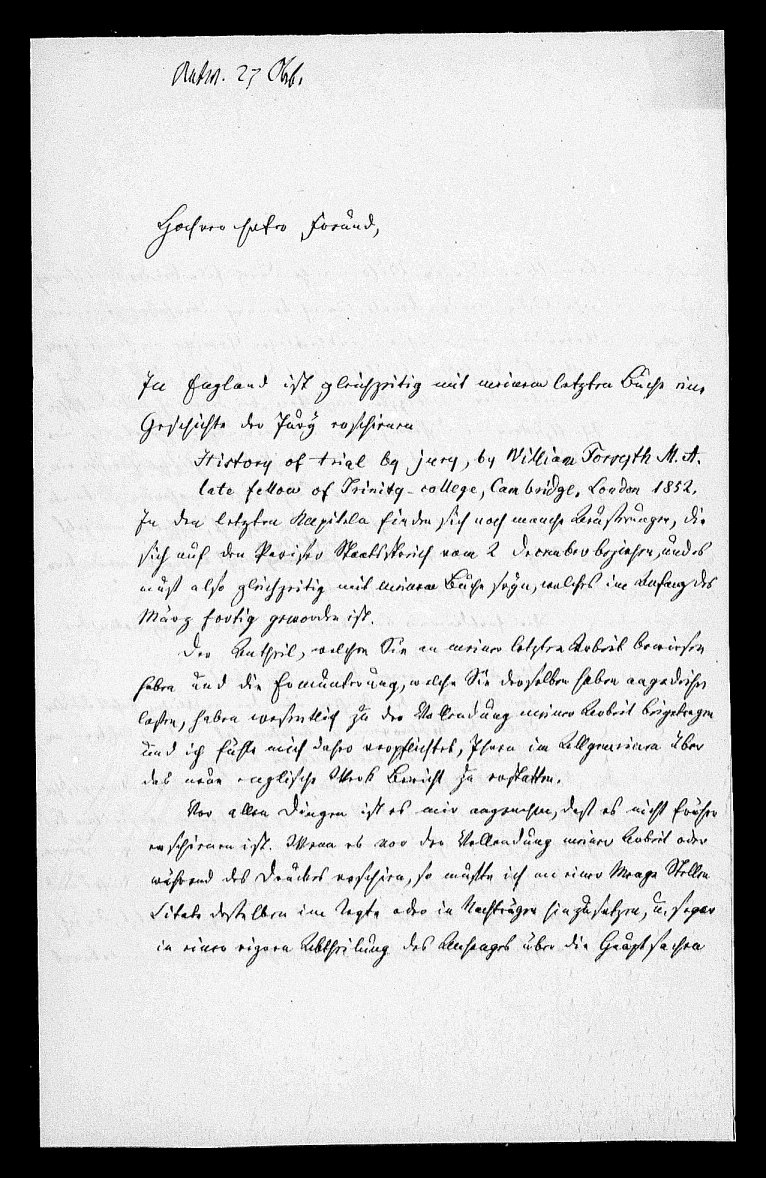 Antw. 27 Okt.
Hochverehrter Freund,
In England ist gleichzeitig mit meinem letzten Buche eine
Geschichte der Jury erschienen
History of trial by jury, by William Forsyth M. A.
late fellow of Trinity-college, Cambridge, London 1852.
In den letzten Kapiteln finden sich noch manche Äußerungen, die
sich auf den Pariser Staatsstreich vom 2 December beziehen, und es
muß also gleichzeitig mit meinem Buche seyn, welches im Anfang des
März fertig geworden ist.
Der Antheil, welchen Sie an meiner letzten Arbeit bewiesen
haben und die Ermunterung, welche Sie derselben haben angedeihen
lassen, haben wesentlich zu der Vollendung meiner Arbeit beigetragen
und ich fühle mich daher verpflichtet, Ihnen im Allgemeinen über
das neue englische Werk Bericht zu erstatten.
Vor allen Dingen ist es mir angenehm, daß es nicht früher
erschienen ist. Wenn es vor der Vollendung meiner Arbeit oder
während des Druckes erschien, so mußte ich an einer Menge Stellen
Citate desselben im Texte oder in Nachträgen hinzusetzen, u. sogar
in einer eigenen Abtheilung des Anhanges über die Hauptsachen